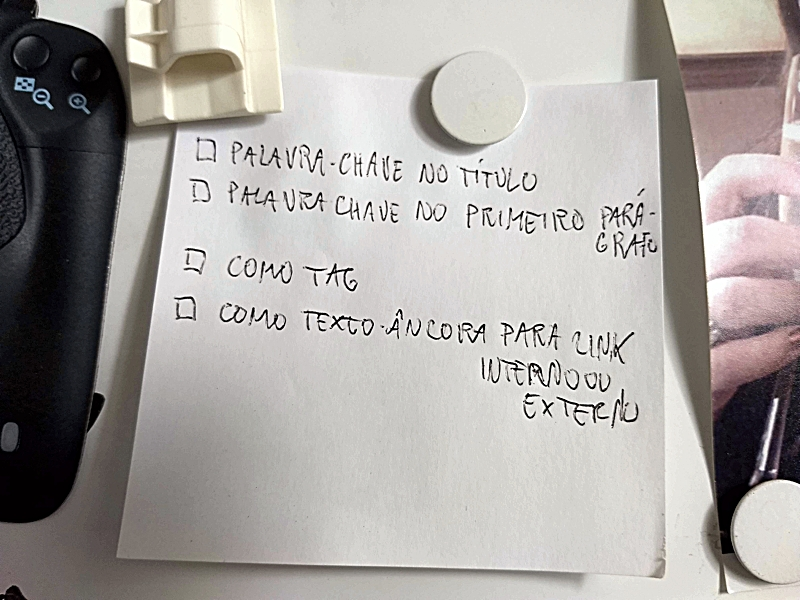 ☐ PALAVRA-CHAVE NO TÍTULO
☐ PALAVRA CHAVE NO PRIMEIRO PARÁ-
GRAFO
☐ COMO TAG
☐ COMO TEXTO-ÂNCORA PARA LINK
INTERNO OU
EXTERNO